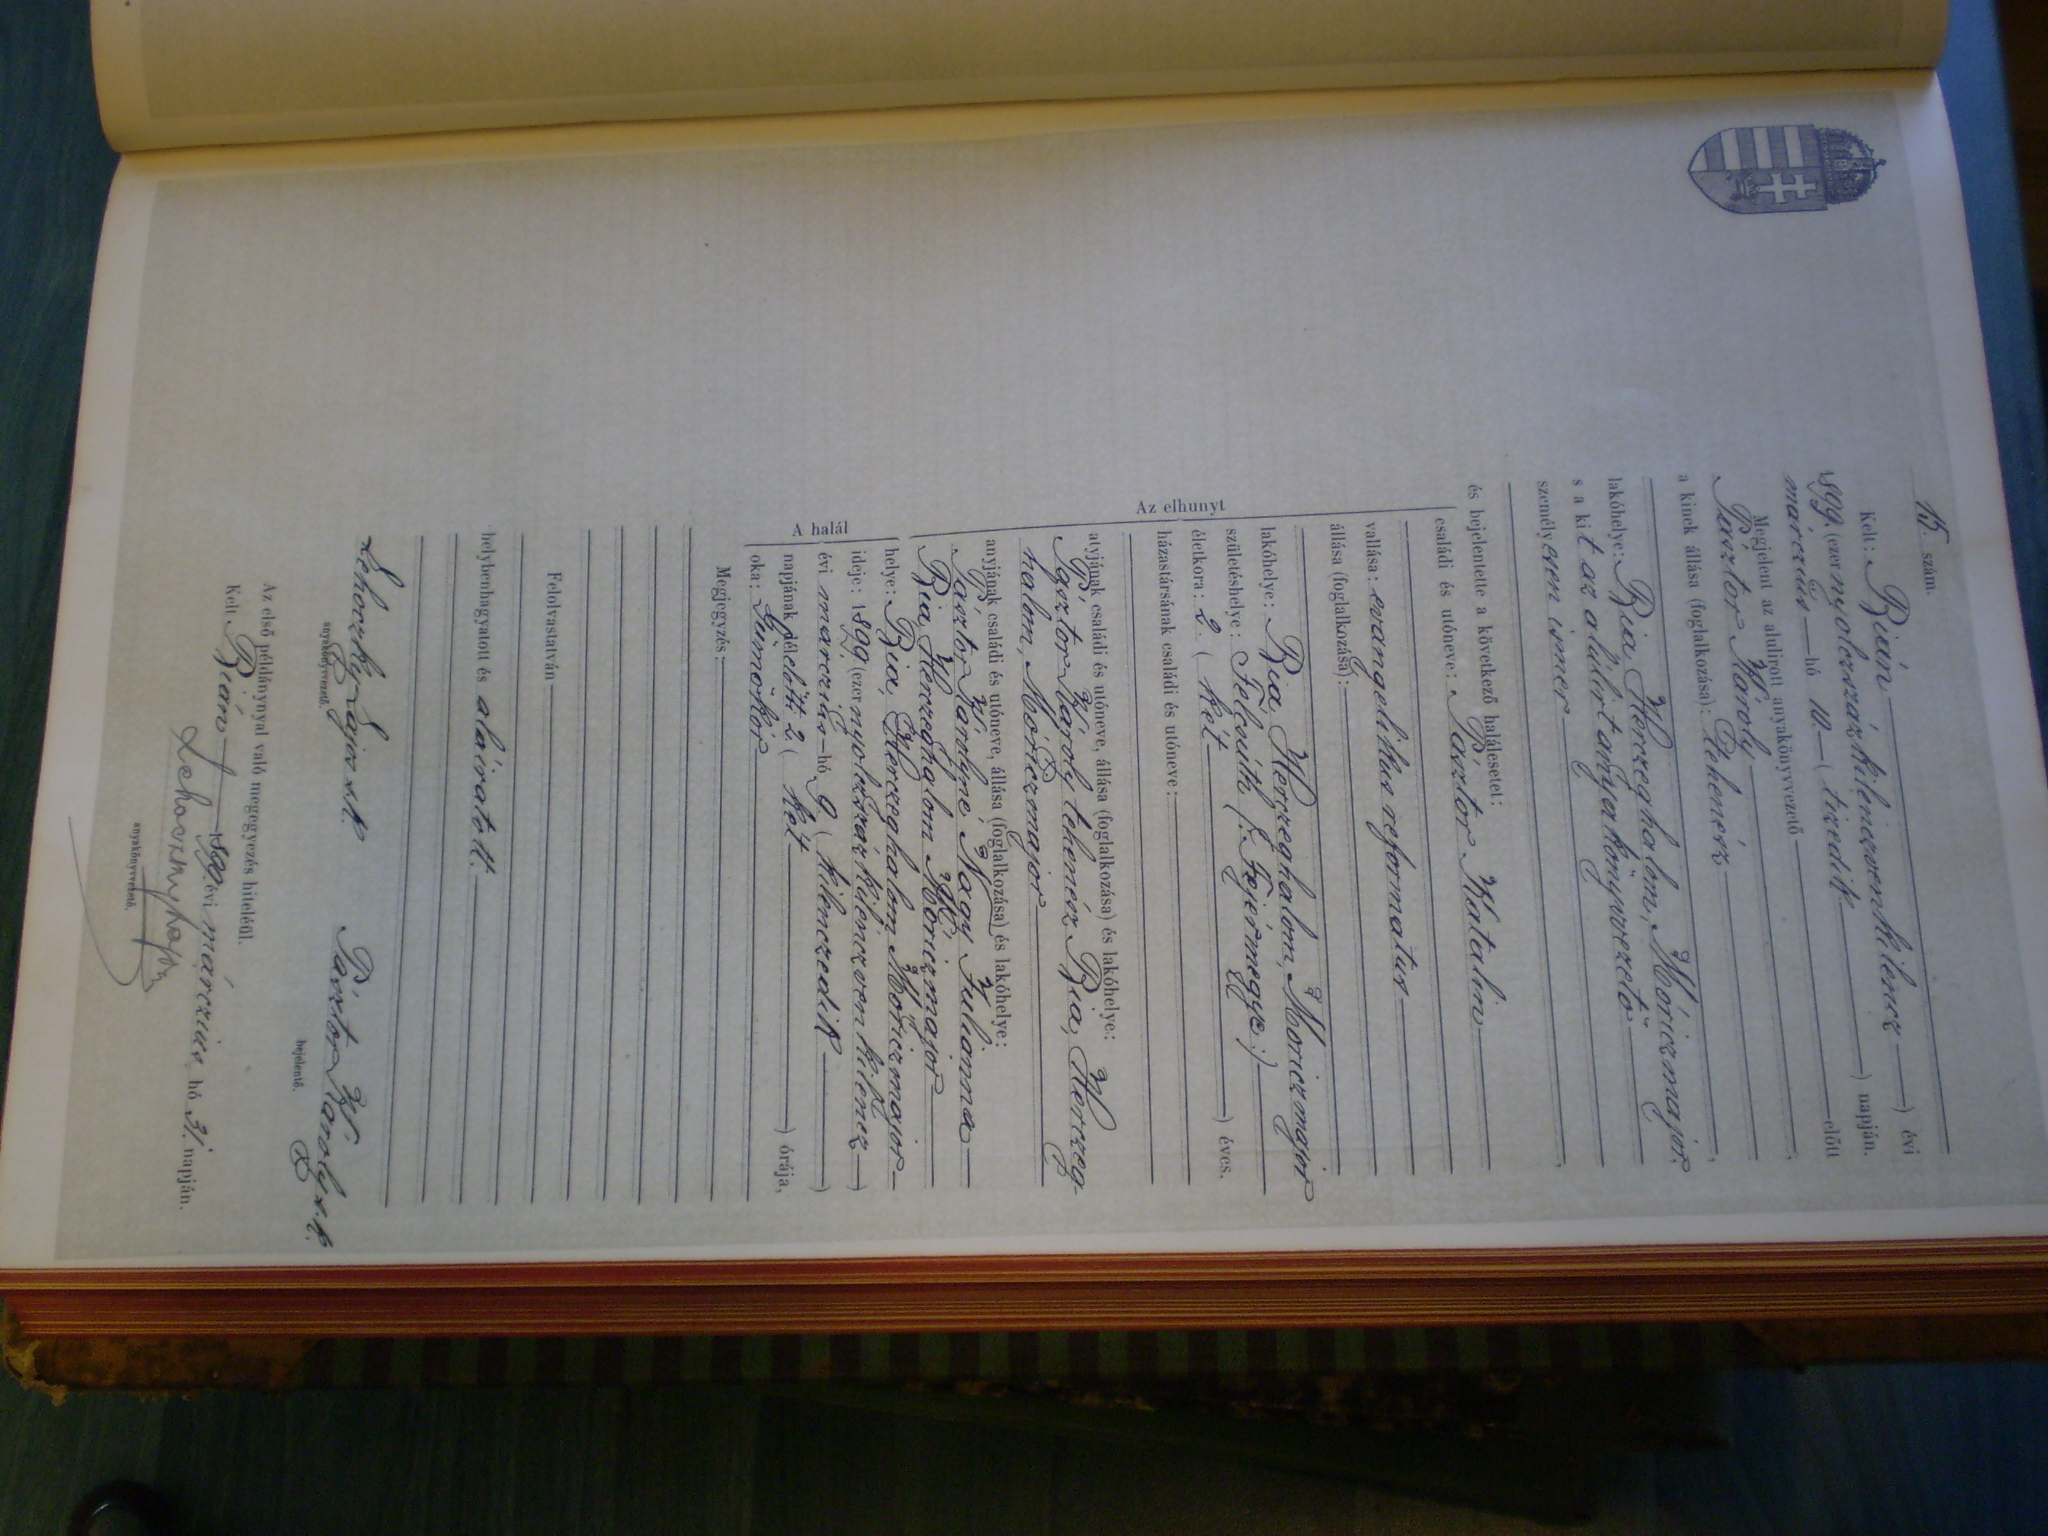 15. szám.
Kelt: Bián évi
1899. (ezernyolczszázkilenczvenkilencz) napján.
márczius hó 10. (tizedik
Megjelent az alulirott anyakönyvvezető előtt
Pásztor Károly,
a kinek állása (foglalkozása): tehenész,
lakóhelye: Bia, Herczeghalom, Móriczmajor,
s a kit az alulirt anyakönyvvezető
személyesen ismer,
és bejelentette a következő halálesetet:
Az elhunyt
családi és utóneve: Pásztor Katalin
vallása: evangelikus reformatus
állása (foglalkozása):
lakóhelye: Bia, Herczeghalom, Moriczmajor
születéshelye: Felcsuth (: Fejérmegye :)
életkora: 2 (két) éves,
házastársának családi és utóneve:
atyjának családi és utóneve, állása (foglalkozása) és lakóhelye:
Pásztor Károly tehenész Bia, Herczeg-
halom, Móriczmajor
anyjának családi és utóneve, állása (foglalkozása) és lakóhelye:
Pásztor Károlyné Nagy Julianna
Bia, Herczeghalom Móriczmajor
A halál
helye: Bia, Herczeghalom Móriczmajor
ideje: 1899. (ezernyolczszázkilenczvenkilencz)
évi marczius hó 9 (kilenczedik)
napjának délelőtt 2 (két) órája,
oka:
Megjegyzés:
Felolvastatván
helybenhagyatott és aláiratott.
Lehoczky Lajos s.k.
anyakönyvvezető.
Pásztor Károly s.k.
bejelentő.
Az első példánynyal való megegyezés hiteléül.
Kelt Bián 1899. évi márczius hó 31. napján.
anyakönyvvezető.